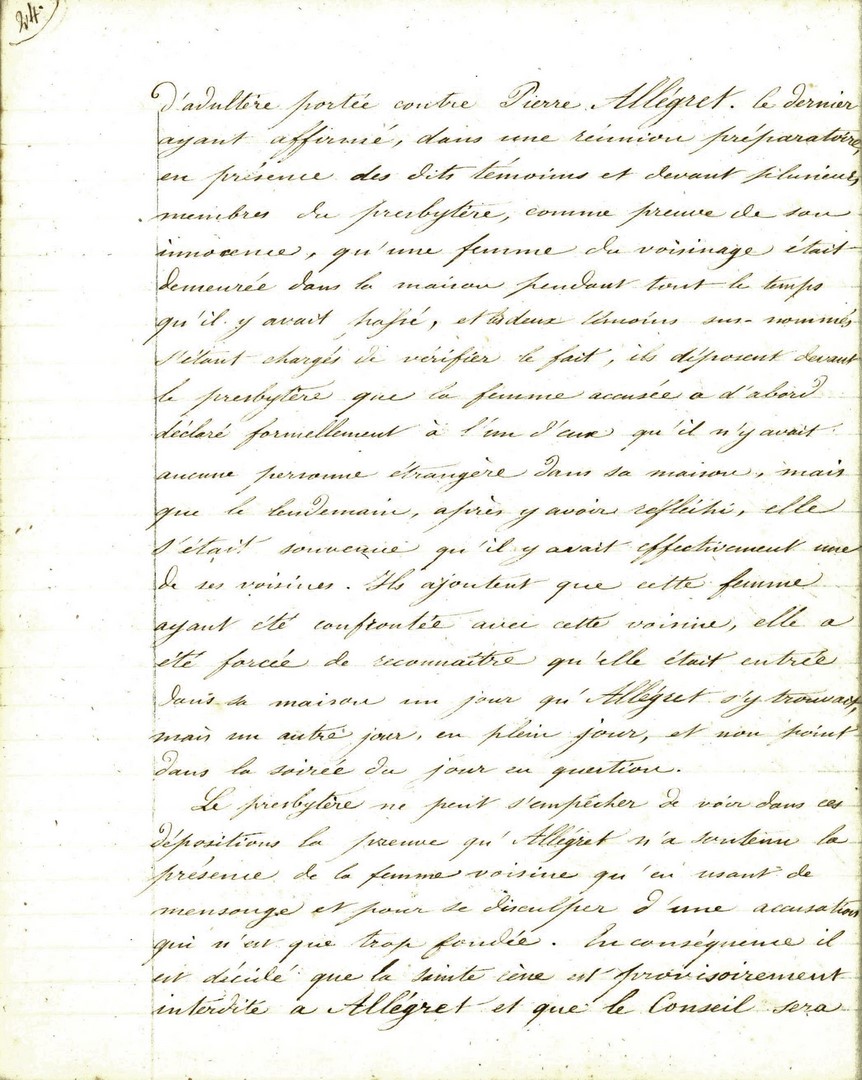 24.
d'adultère portée contre Pierre Allégret. le dernier
ayant affirmé, dans une réunion préparatoire,
en présence des dits témoins et devant plusieurs
membres du presbytère, comme preuve de son
innocence, qu'une femme du voisinage était
demeurée dans la maison pendant tout le temps
qu'il y avait passé, et les deux témoins sus-nommés
s'étant chargés de vérifier le fait, ils déposent devant
le presbytère que la femme accusée a d'abord
déclaré formellement à l'un d'eux qu'il n'y avait
aucune personne étrangère dans sa maison, mais
que le lendemain, après y avoir réfléchi, elle
s'était souvenue qu'il y avait effectivement une
de ses voisines. Ils ajoutent que cette femme
ayant été confrontée avec cette voisine, elle a
été forcée de reconnaître qu'elle était entrée
dans sa maison un jour qu'Allégret s'y trouvait,
mais un autre jour, en plein jour, et non point
dans la soirée du jour en question.
Le presbytère ne peut s'empêcher de voir dans ces
dépositions la preuve qu'Allégret n'a soutenu la
présence de la femme voisine qu'en usant de
mensonge et pour se disculper d'une accusation
qui n'est que trop fondée. En conséquence il
est décidé que la sainte cène est provisoirement
interdite a Allégret et que le Conseil sera